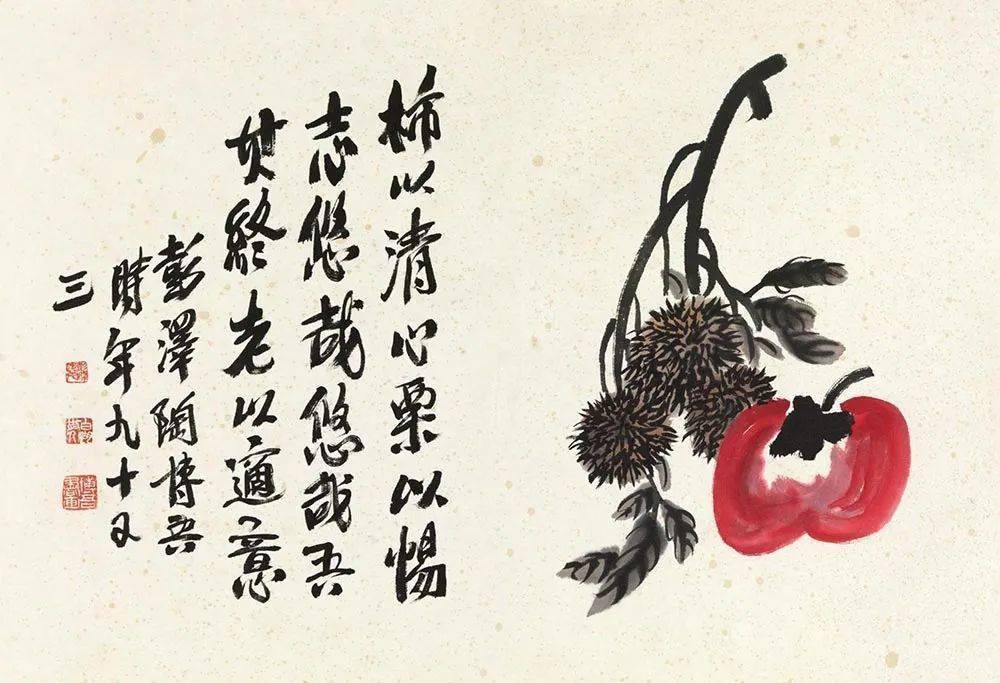 柿以清心栗以惕
志悠哉悠哉吾
其終老以適意
彭澤陶博吾
時年九十又
三